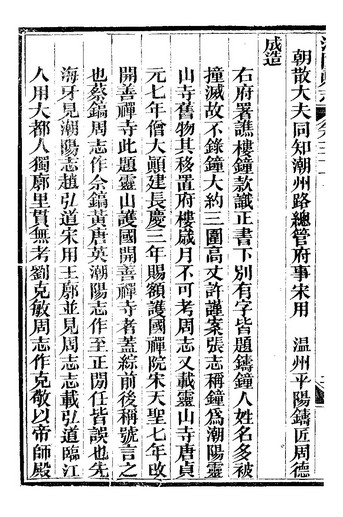 朝散大夫同知潮州路總管府事宋用　溫州平陽鑄匠周德
成造
右府署譙樓鐘款識正書下別有字皆題鑄鐘人姓名多被
撞滅故不錄鐘大約三圍高丈許謹案張志稱鐘為潮陽靈
山寺舊物其移置府樓歲月不可考周志又載靈山寺唐貞
元七年僧大顛建長慶二年賜額護國禪院宋天聖七年改
開善禪寺此題靈山護國開善禪寺者蓋綜前後稱號言之
也蔡鎬周志作余鎬黃唐英潮陽志作至正間任皆誤也先
海牙見潮陽志趙弘道宋用王廓並見周志志載弘道臨江
人用大都人獨廓里貫無考劉克敏周志作克敬以帝師殿